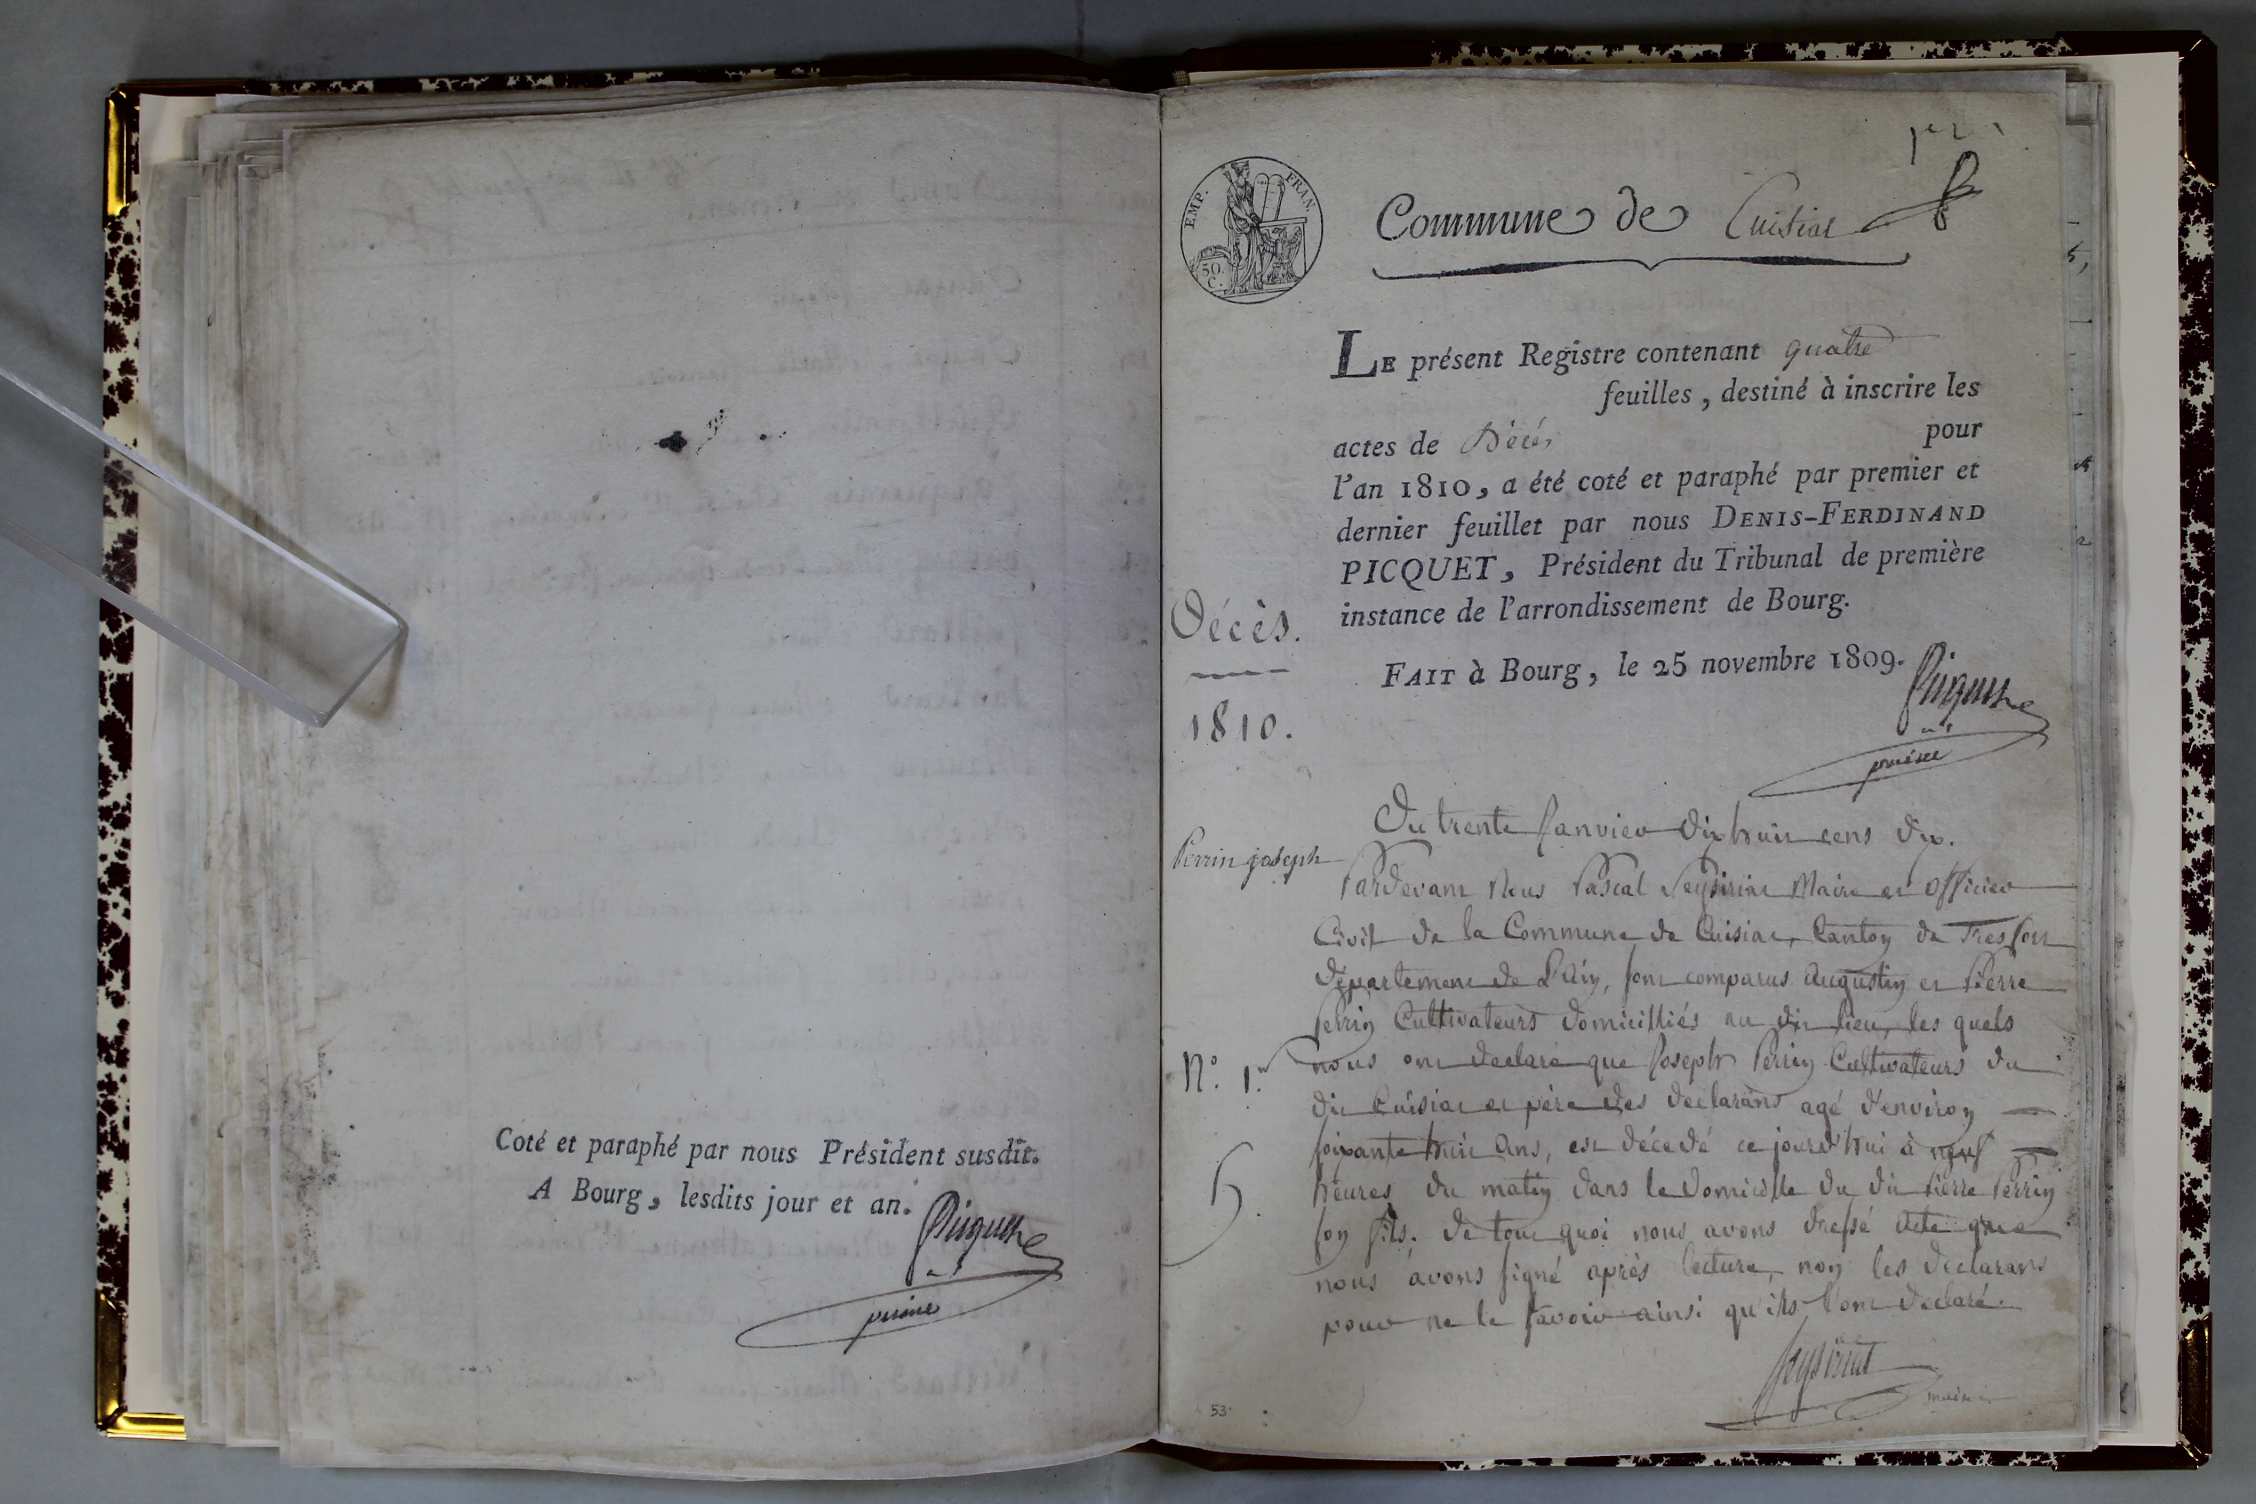 Coté et paraphé par nous Président susdit.
A Bourg, lesdits jour et an.
EMP. FRAN.
50.
C.
Commune de Cuisiat
LE présent Registre contenant quatre
feuilles, destiné à inscrire les
actes de Décès pour
l'an 1810, a été coté et paraphé par premier et
dernier feuillet par nous DENIS-FERDINAND
PICQUET, Président du Tribunal de première
instance de l'arrondissement de Bourg.
FAIT à Bourg, le 25 novembre 1809.
Décès.
1810.
Perrin joseph
N.o 1.er
Du trente Janvier dix huit cens dix.
Pardevant Nous Pascal Maire et officier
Civil de la Commune de Cuisiat, Canton de Treffort
département de L'Ain, sont comparus augustin et Pierre
Perrin Cultivateurs domicilliés au dit lieu, les quels
nous ont declaré que Joseph Perrin Cultivateurs du
dit Cuisiat et père des declarans agé d'environ
soixante huit ans, est décedé ce jourd'hui à neuf
heures du matin dans le domicille du dit Pierre Perrin
son fils. de tout quoi nous avons dressé acte que
nous avons signé après lecture, non les declarans
pour ne le savoir ainsi qu'ils l'ont declaré.
maire
53